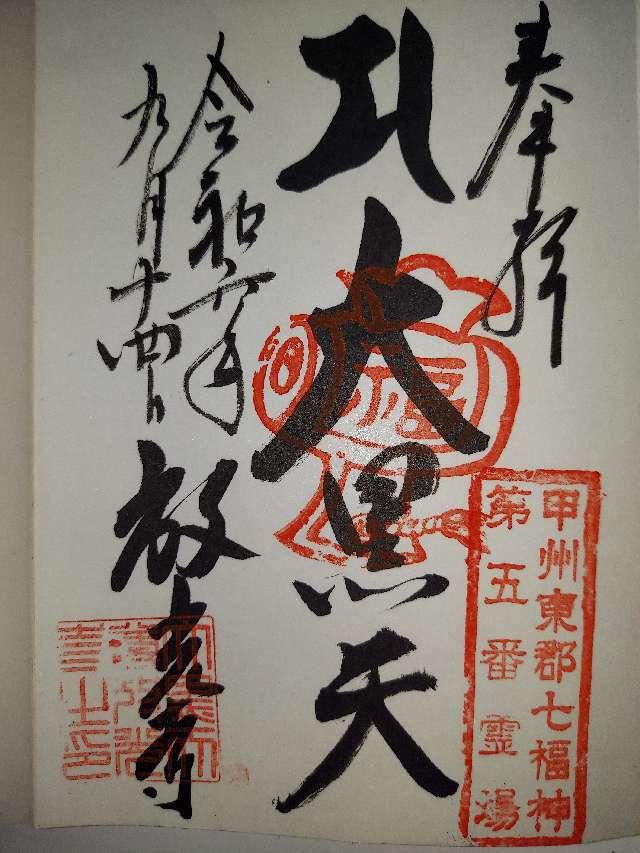 奉拝
甲州東郡七福神
第五番霊場
大黒天
福
令和六年
九月十四日
放光寺